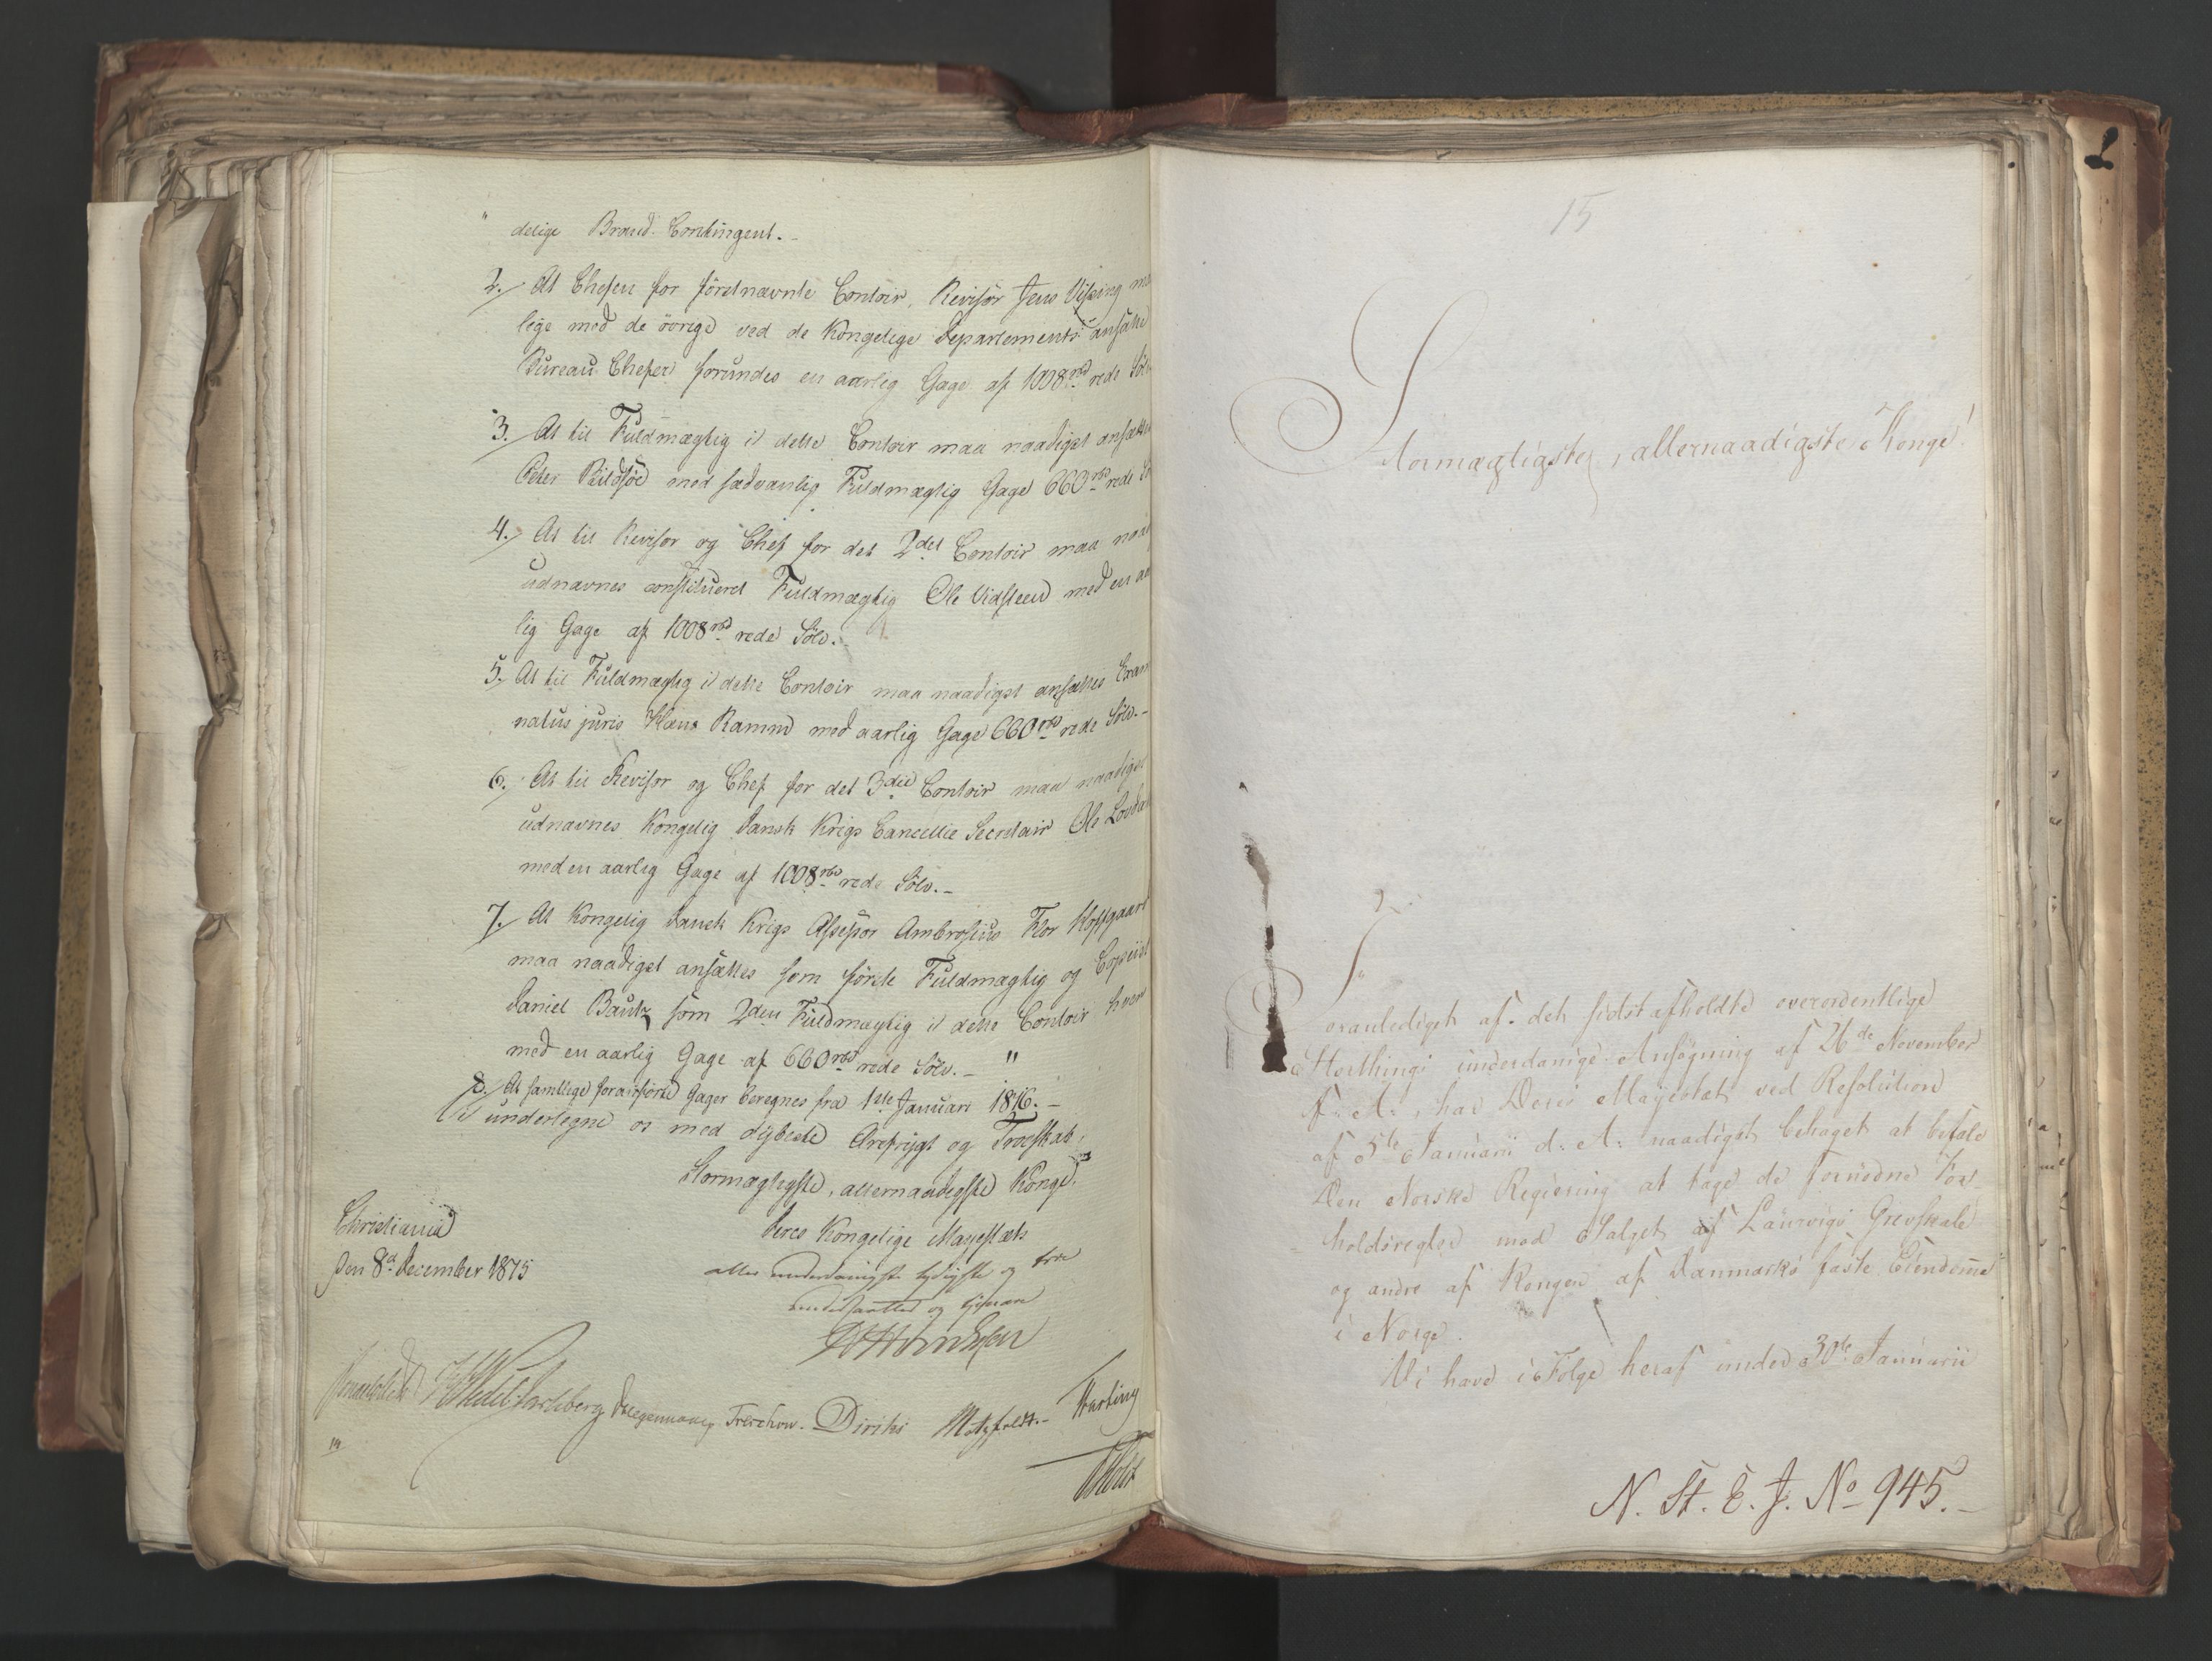 delige Brand-Contingent.-
2./ At Chefen for förstnævnte Contoir, Revisor Jens Vissing
lige med de övrige ved de Kongelige Departementer ansatte
Bureau-Chefer forundes en aarlig Gage af 1008 rbd rede Sölv
3./ At til Fuldmægtig i dette Contoir maa naadigst ansættes
Peter Bildsöe med sædvanlig Fuldmægtig Gage 660 rbd rede
4./ At til Revisor og Chef for det 2det Contoir maa
udnævnes constitueret Fuldmægtig Ole Vidsteen med en aar
lig Gage af 1008 rbd rede Sölv.-
5./ At til Fuldmægtig i dette Contoir maa naadigst ansættes Exami
natus juris Hans Ramm med aarlig Gage 660 rbd rede Sölv.-
6./ At til Revisor og Chef for det 3die Contoir maa naadigst
udnævnes Kongelig Dansk Krigs Cancellie Secretair Ole
med en aarlig Gage af 1008 rbd rede Sölv.-
7./ At Kongelig Dansk Krigs Assessor Ambrosius Flor Hoffgaard
maa naadigst ansættes som förste Fuldmægtig og Copiist
Daniel Bautz som 2den Fuldmægtig i dette Contoir hver
med en aarlig Gage af 660 rbd rede Sölv.- "
8. At samtlige foranförte Gager beregnes fra 1ste Januari 1816.-
Vi underlegne os med dybeste Ærefrygt og Troeskab,
Stormægtigste, allernaadigste Konge!
Deres Kongelige Mayestæts
Christiania
den 8de December 1815
allerunderdanigste lydigste og troe
undersaatter og tjenere
Wedel-Jarlsberg Treschow. Diriks Motzfeldt.-
Holst
15
Stormægtigste, allernaadigste Konge!
Foranlediget af det sidst afholdte overordentlige
Storthings underdanige Ansögning af 26de November
f: A:, har Deres Mayestæt ved Resolution
af 5te Januarii d: A: naadigst behaget at befale
Den Norske Regiering at tage de fornödne For-
holdsregler mod Salget af Laurvigs Grevskab
og andre af Kongen af Danmarks faste Eiendomme
i Norge.
Vi have i Fölge heraf under 30te Januarii
N. St. E. J. No 945.-